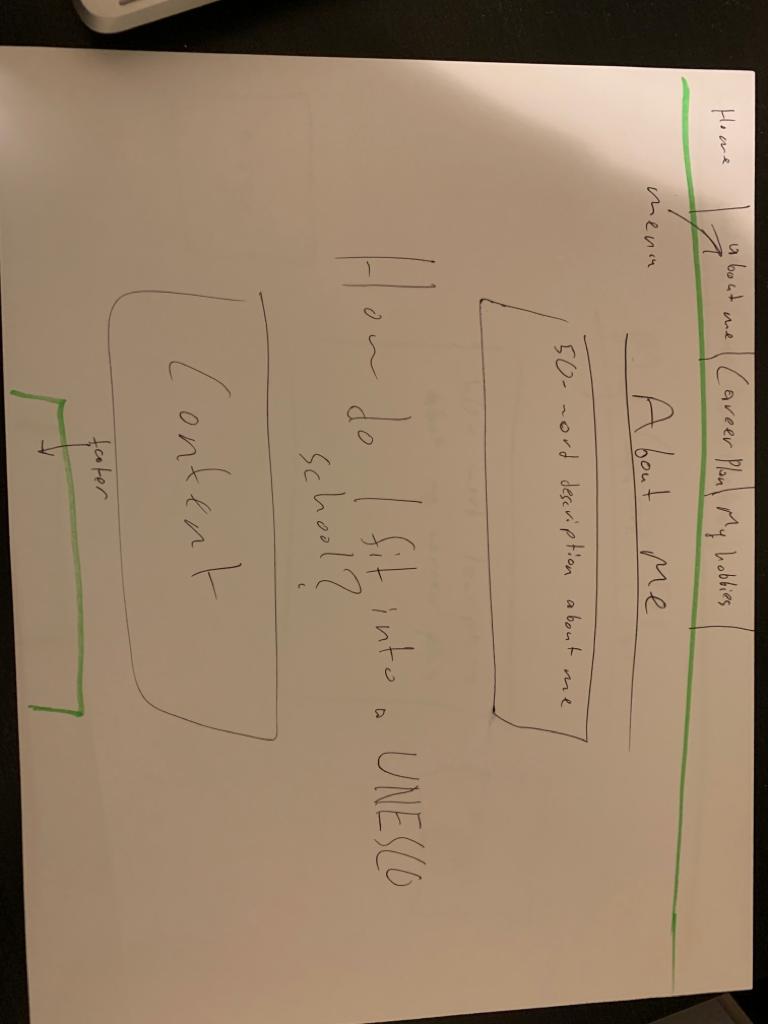 Home | about me | Career Plan | My hobbies
menu
About me
50-word description about me
How do I fit into a UNESCO
school?
Content
footer